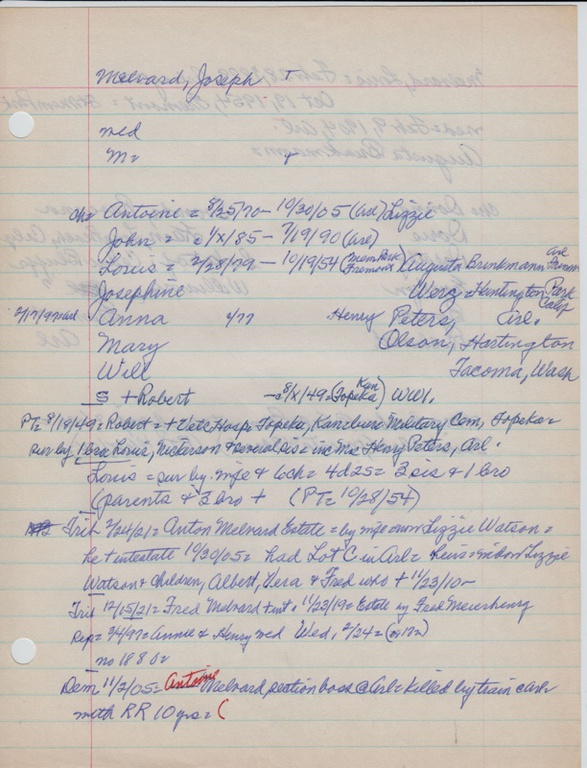 Melvard, Joseph +
med
Mr
chr Antoine = 8/25/70 - 10/30/05 (arl) Lizzie
John = c 1/x/85 - 7/19/90 (arl)
Louis = 2/28/79 - 10/19/54 (Mem Park Fremont) Augusta Brinkmann Arl Fremont
Josephine Werz = Huntington Park Calif
2/17/97 arl Anna 4/77 Henry Peters, Arl.
Mary Olson, Hartington
Will Tacoma, Wash
S + Robert - 8/x/49 = (Topeka Kan) WWI.
PT= 8/18/49 = Robert = + Vets Hosp = Topeka, Military Cem, Topeka =
sur by 1 bro Louis, Nickerson & several sis = inc Mrs Henry Peters, Arl.
Louis = sur by wife & 6 ch = 4 d 2 s = 3 sis & 1 bro
(parents & 3 bro + (PT= 10/28/54)
Trib 2/24/21 = Anton Melvard Estate = by Lizzie Watson =
he + intestate 10/30/05 = had Lot C in Arl = heirs = widow Lizzie
Watson & children, Albert, Vera & Fred who + 11/23/10 -
Trib 12/15/21 = Fred Melvard + int. 11/23/19 = Estate by Fred Meierhenry
Rep = 3/4/97 = Annie & Henry med Wed, 2/24 = (or 17th)
no 1880 =
Dem 11/2/05 = Antoine Melvard section boss @ Arl = killed by train car =
with RR 10 yrs = (